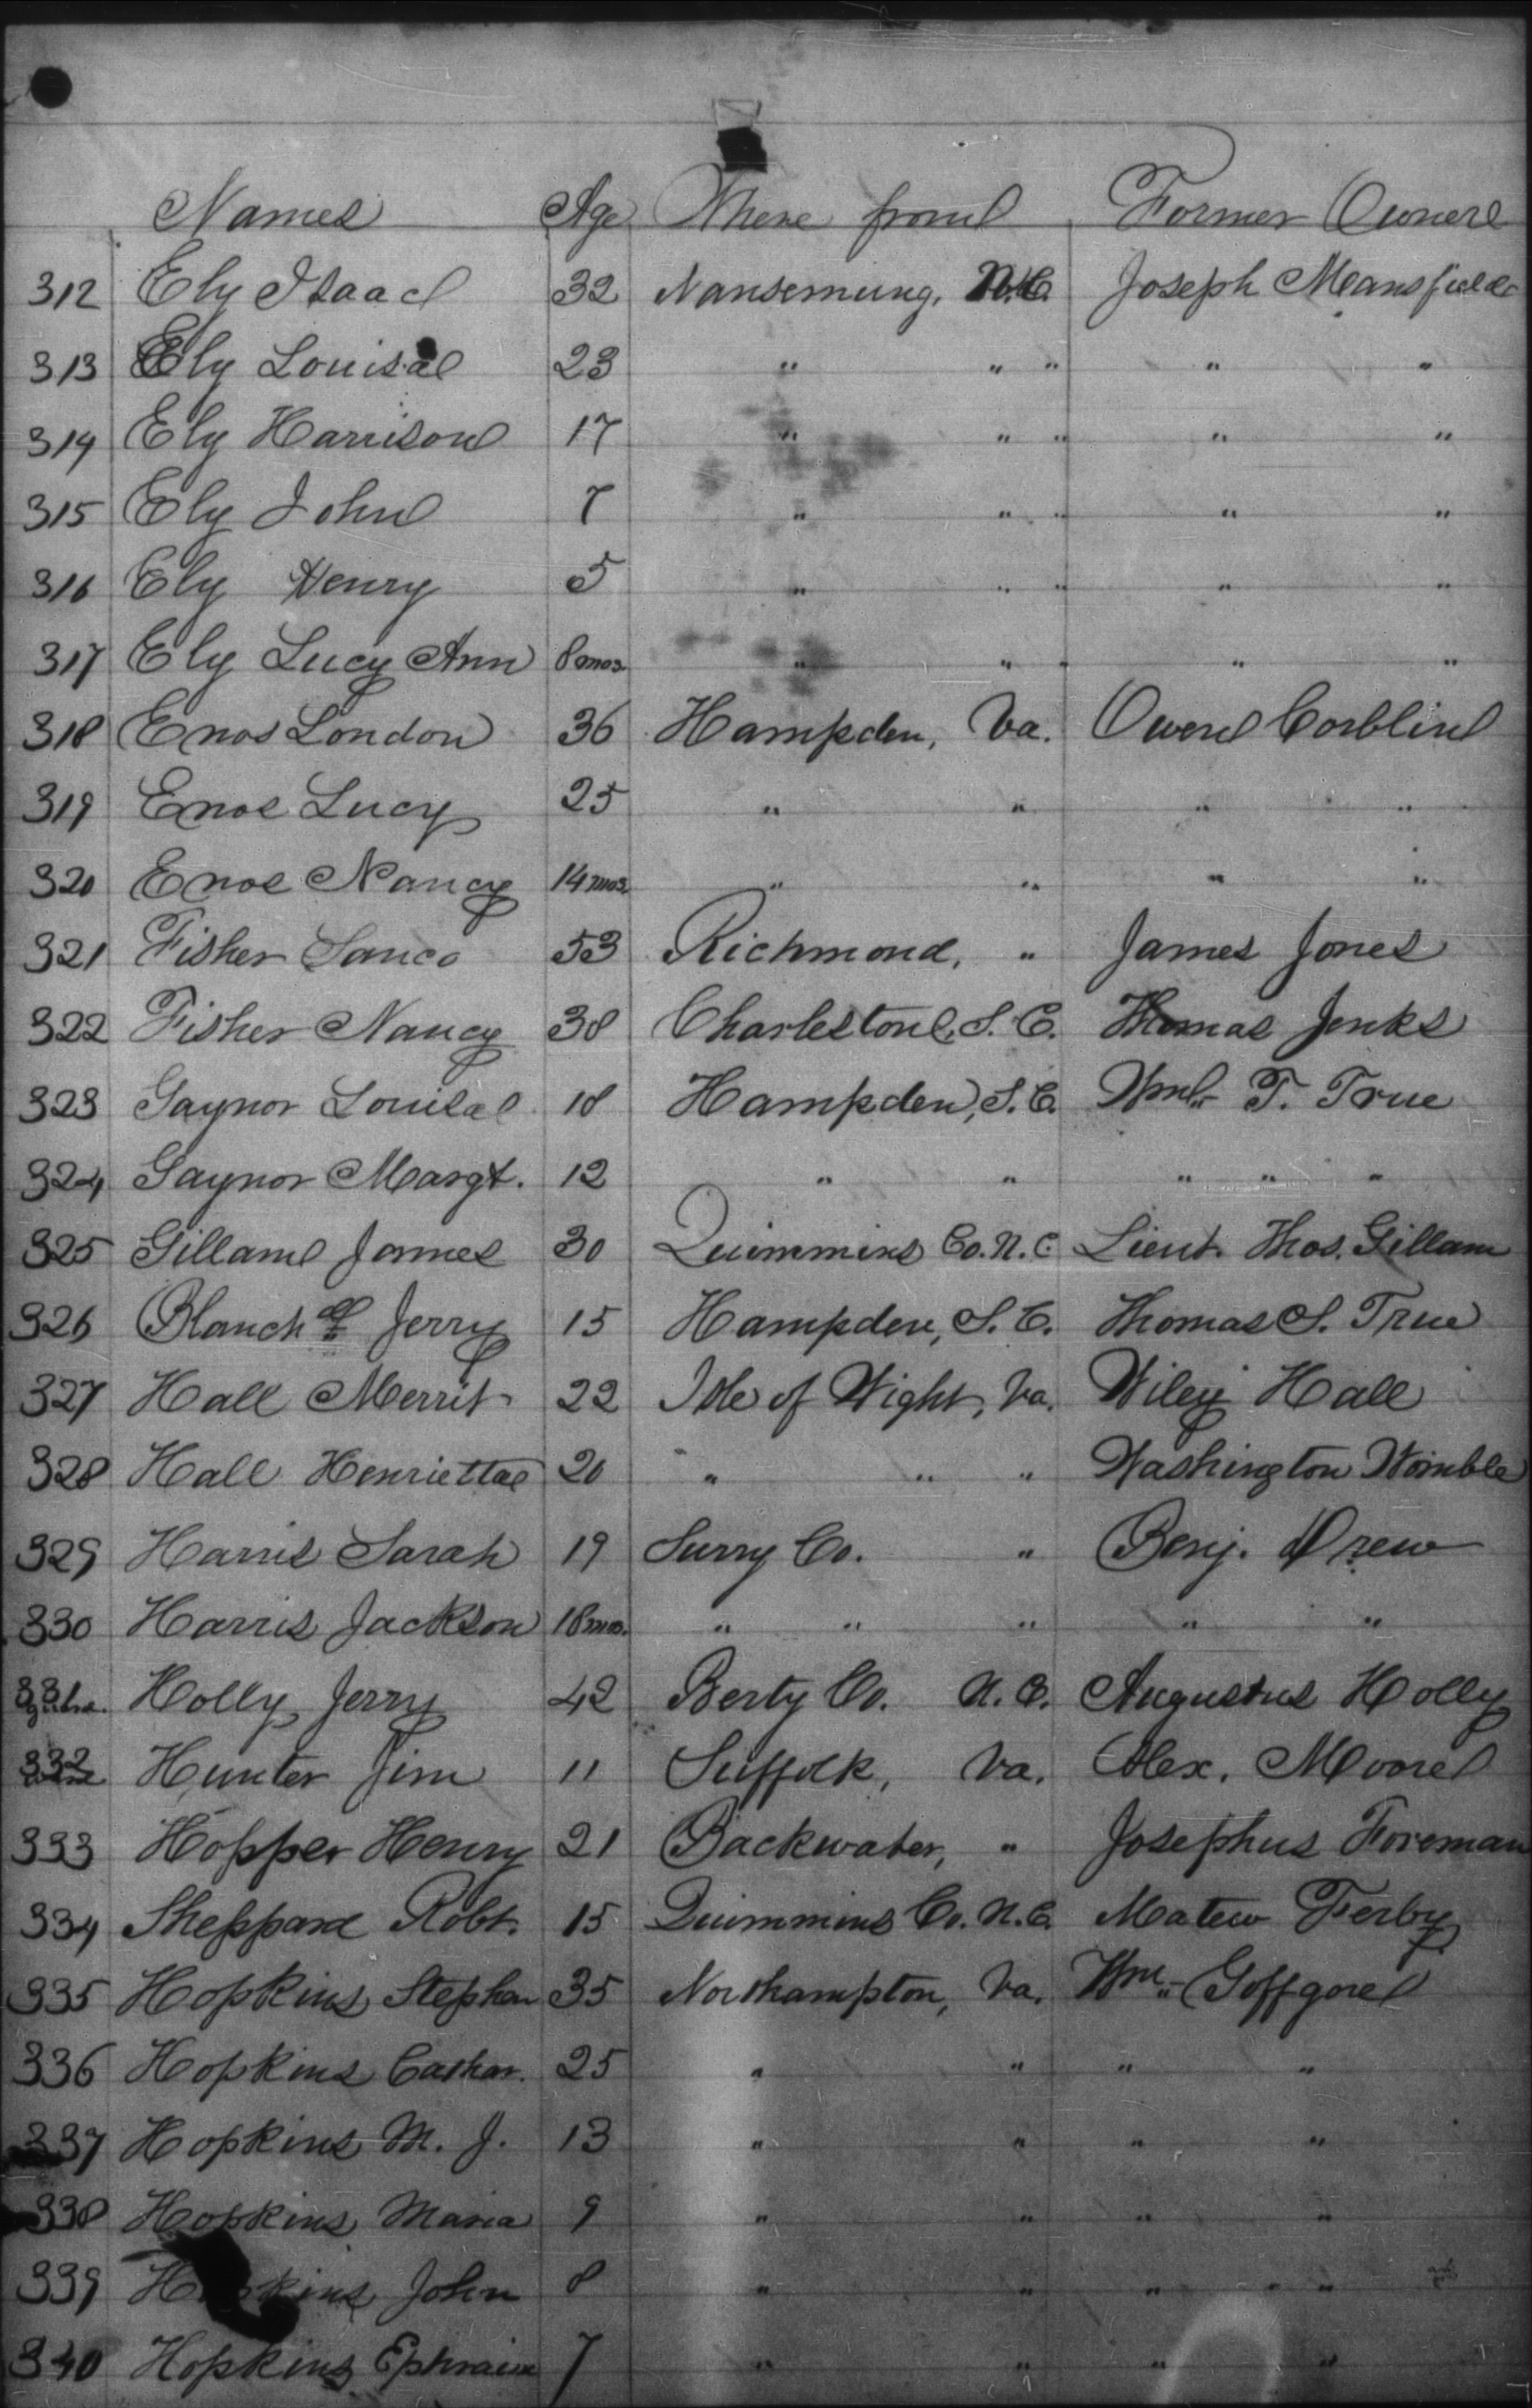 Names Age Where from Former Owner
312 Ely Isaac 32 Nansemung, N.C. Joseph Mansfield
313 Ely Louisa 23 " " " " "
314 Ely Harrison 17 " " " " "
315 Ely John 7 " " " " "
316 Ely Henry 5 " " " " "
317 Ely Lucy Ann 8 mos. " " " " "
318 Enos London 36 Hampden, Va. Owen Corblin
319 Enos Lucy 25 " " " "
320 Enos Nancy 14 mos. " " " "
321 Fisher Sanco 53 Richmond, " James Jones
322 Fisher Nancy 38 Charleston, S. C. Thomas Jenks
323 Gaynor Louisa 18 Hampden, S. C. Wm. T. True
324 Gaynor Margt. 12 " " " " "
325 Gillam James 30 Quimmins Co. N. C. Lieut. Thos. Gillam
326 Blanch Jerry 15 Hampden, S. C. Thomas S. True
327 Hall Merrit 22 Isle of Wight, Va. Wiley Hall
328 Hall Henrietta 20 " " " Washington Womble
329 Harris Sarah 19 Surry Co. " Benj. Drew
330 Harris Jackson 18 mos. " " " " "
331 Holly Jerry 42 Berty Co. N. C. Augustus Holly
332 Hunter Jim 11 Suffolk, Va. Alex. Moore
333 Hopper Henry 21 Backwater, " Josephus Foreman
334 Sheppard Robt. 15 Quimmins Co. N. C. Matew Ferby
335 Hopkins Stephen 35 Northampton, Va. Wm. Goffgore
336 Hopkins Cathar. 25 " " " "
337 Hopkins M. J. 13 " " " "
338 Hopkins Maria 9 " " " "
339 Hopkins John 8 " " " "
340 Hopkins Ephraim 7 " " " "